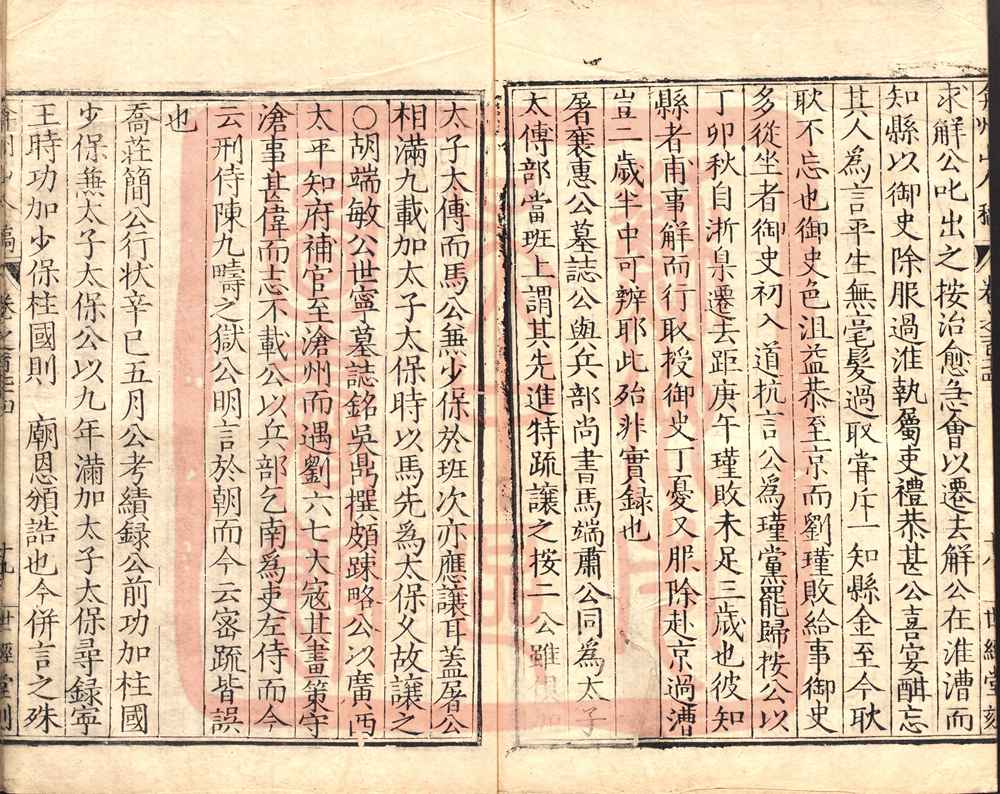 求解公叱出之按治愈急會以遷去解公在淮漕而
知縣以御史除服過淮執屬吏禮恭甚公喜宴酣忘
其人為言平生無毫髮過取嘗斥一 知縣金至今耿
耿不忘也御史色沮益恭至京而劉瑾敗給事御史
多從坐者御史初入道抗言公為瑾黨罷歸按公以
丁卯秋自浙臬遷去距庚午瑾敗未足三歲也彼知
縣者甫事解而行取授御史丁憂又服除赴京過漕
豈二歲半中可辨耶此殆非實錄也
屠襄惠公墓誌公與兵部尚書馬端肅公同為太子
太傅部當班上謂其先進特疏讓之按二公雖
太子太傅而馬公兼少保於班次亦應讓耳蓋屠公
相滿九載加太子太保時以馬先為太保久故讓之
○胡端敏公世寧墓誌銘吳鼎撰頗踈略公以廣西
太平知府補官至滄州而遇劉六七大寇其畫策守
滄事甚偉而志不載公以兵部乞南為吏左侍而今
云刑侍陳九疇之獄公明言於朝而今云密疏皆誤
也
喬莊簡公行狀辛巳五月公考績錄公前功加柱國
少保兼太子太保公以九年滿加太子太保尋錄寧
王時功加少保柱國則 廟恩頒誥也今併言之殊
卷之
十九
世經堂刻
世經堂刻